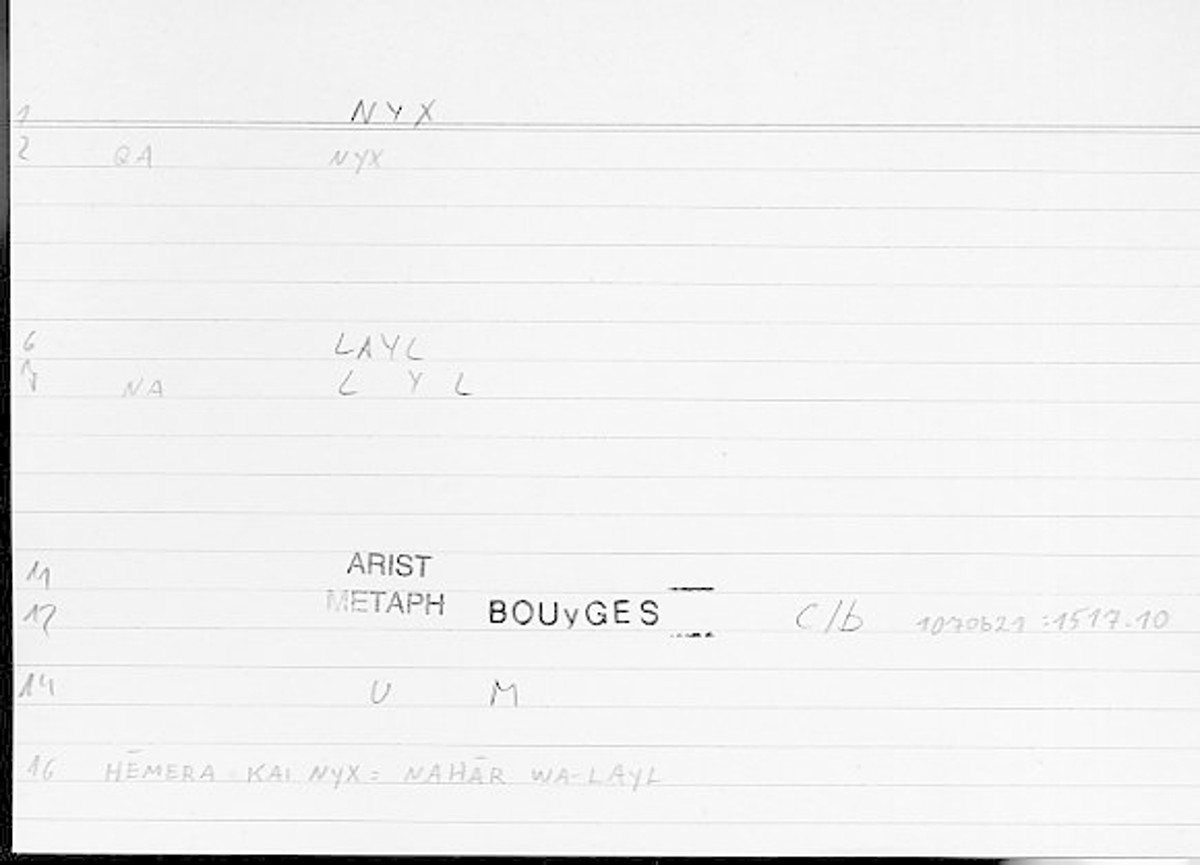 1 NYX
2 QA NYX
6 LAYL
7 NA L Y L
11 ARIST
12 METAPH BOUyGES C/b 1070b21:1517.10
14 U M
16 HĒMERA KAI NYX = NAHĀR WA-LAYL